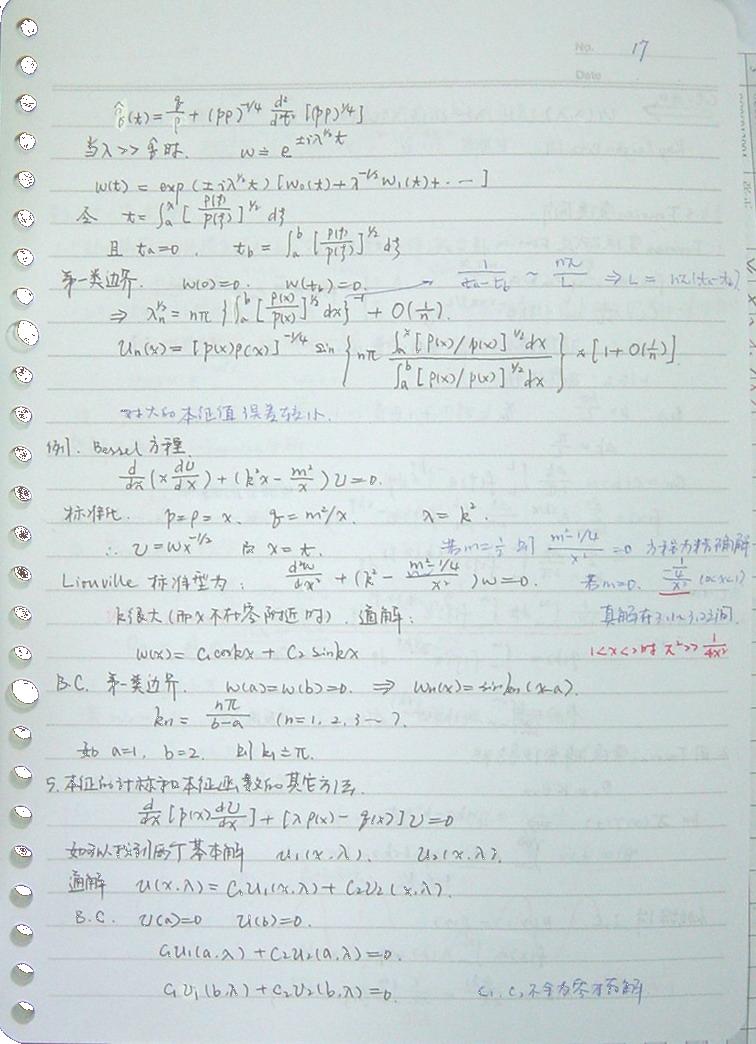 No. 17
Date
q̂(t) = q/ρ + (pρ)^{-1/4} d²/dt² [(pρ)^{1/4}]
当λ>>q̂时. w ≐ e^{±iλ^{1/2}t}
w(t) = exp(±iλ^{1/2}t) [w₀(t) + λ^{-1/2}w₁(t) + ⋯]
令 t = ∫_a^x [ρ(ξ)/p(ξ)]^{1/2} dξ
且 t_a=0, t_b = ∫_a^b [ρ(ξ)/p(ξ)]^{1/2} dξ
第一类边界. w(0)=0. w(t_b)=0. 1/(t_a-t_b) ~ nπ/L ⇒ L = nπ(t_a-t_b)
⇒ λ_n^{1/2} = nπ {∫_a^b [ρ(x)/p(x)]^{1/2} dx}^{-1} + O(1/n).
U_n(x) = [p(x)ρ(x)]^{-1/4} sin { nπ ∫_a^x [ρ(x)/p(x)]^{1/2} dx / ∫_a^b [ρ(x)/p(x)]^{1/2} dx } × [1+O(1/n)]
对大的本征值误差较小.
例1. Bessel 方程.
d/dx (x dU/dx) + (k²x - m²/x) U = 0.
标准化. p=ρ=x. q=m²/x. λ=k².
∴ U = wx^{-1/2} x=t. 若m=1/2 则 (m²-1/4)/x² = 0 方程为精确解
Liouville 标准型为: d²w/dx² + (k² - (m²-1/4)/x²) w = 0. 若m=0. (-1/4)/x² (1<x<2)
k很大(而x不在零附近时). 通解: 真解在3.1~3.2之间.
w(x) = C₁coskx + C₂sinkx
B.C. 第一类边界. w(a)=w(b)=0. ⇒ w_n(x)=sink_n(x-a). 1<x<2时 π²>>1/4x²
k_n = nπ/(b-a) (n=1, 2, 3⋯).
如 a=1, b=2. 则 k₁≐π.
5. 本征值计标和本征函数的其它方法.
d/dx [p(x) dU/dx] + [λρ(x) - q(x)] U = 0
如可以找到两个基本解 u₁(x,λ), u₂(x,λ).
通解 u(x,λ) = C₁u₁(x,λ) + C₂u₂(x,λ).
B.C. U(a)=0 U(b)=0.
C₁u₁(a,λ) + C₂u₂(a,λ) = 0.
C₁u₁(b,λ) + C₂u₂(b,λ) = 0. C₁, C₂不全为零才有解